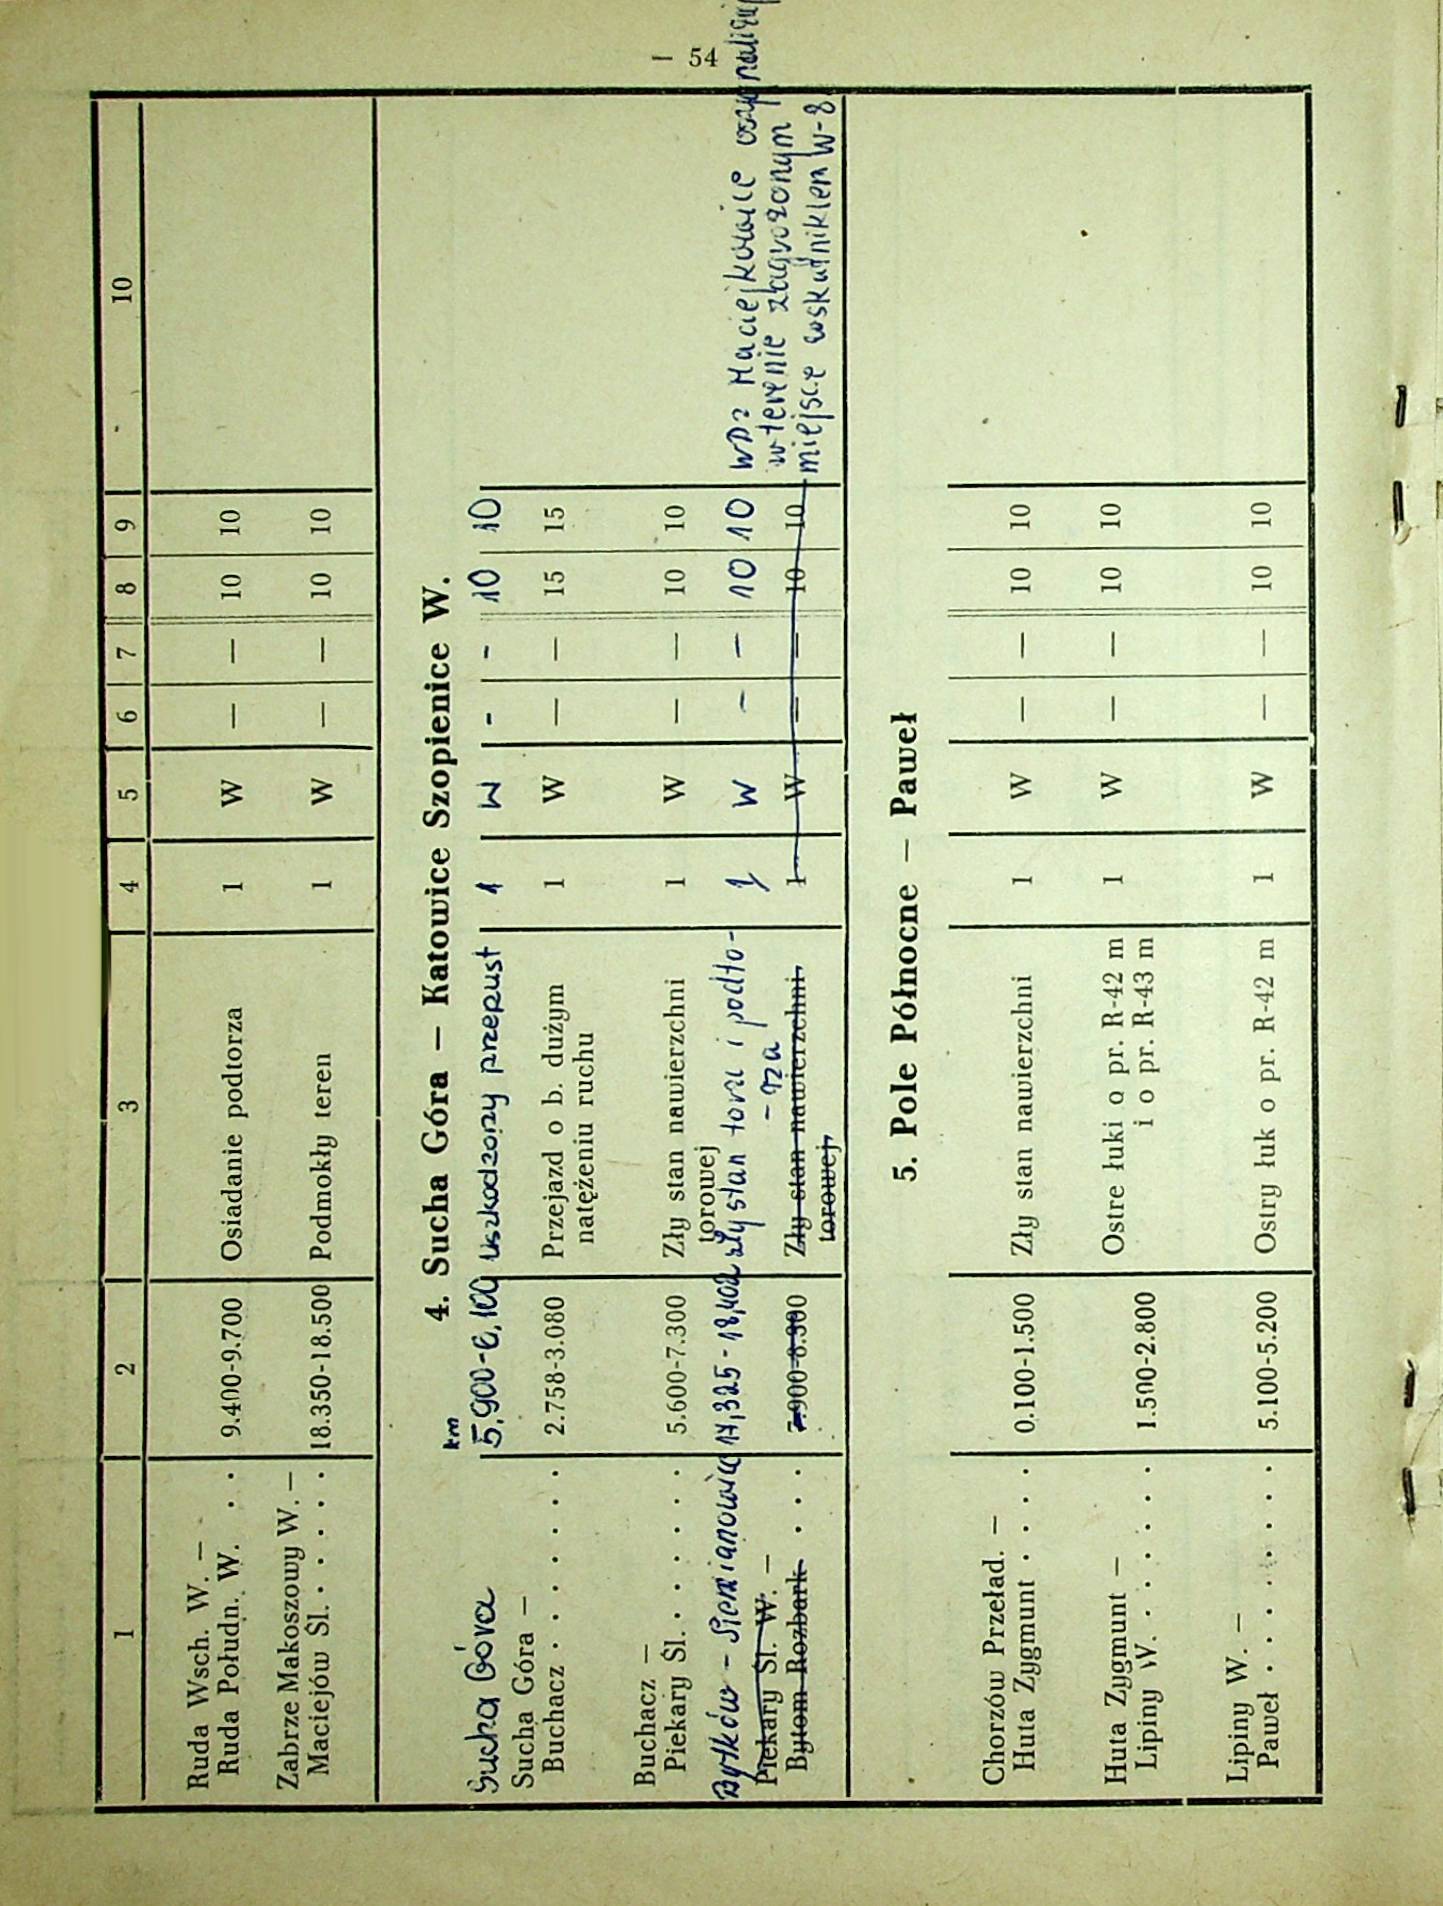 — 54
1 2 3 4 5 6 7 8 9 10
Ruda Wsch. W. —
Ruda Połudn. W. . . 9.400-9.700 Osiadanie podtorza 1 W — — 10 10
Zabrze Makoszowy W. —
Maciejów Śl. . . . . . 18.350-18.500 Podmokły teren 1 W — — 10 10
4. Sucha Góra — Katowice Szopienice W.
km
Sucha Góra 5,900-6,100 uszkodzony przepust 1 W - - 10 10
Sucha Góra —
Buchacz . . . . . . 2.758-3.080 Przejazd o b. dużym 1 W — — 15 15
natężeniu ruchu
Buchacz —
Piekary Śl. . . . . . 5.600-7.300 Zły stan nawierzchni 1 W — — 10 10
torowej
Bytków - Siemianowice 17,325-18,402 zły stan toru i podto- 1 W - - 10 10 WDz Maciejkowice
-rza w terenie zagrożonym
Piekary Śl. W. —
Bytom Rozbark . . . 7.900-8.300 Zły stan nawierzchni 1 W — — 10 10 miejsce wskaźnikiem W-8
torowej
5. Pole Północne — Paweł
Chorzów Przeład. —
Huta Zygmunt . . . . 0.100-1.500 Zły stan nawierzchni 1 W — — 10 10
Huta Zygmunt — Ostre łuki o pr. R-42 m 1 W — — 10 10
Lipiny W. . . . . . . 1.500-2.800 i o pr. R-43 m
Lipiny W. —
Paweł . . . . . . . 5.100-5.200 Ostry łuk o pr. R-42 m 1 W — — 10 10